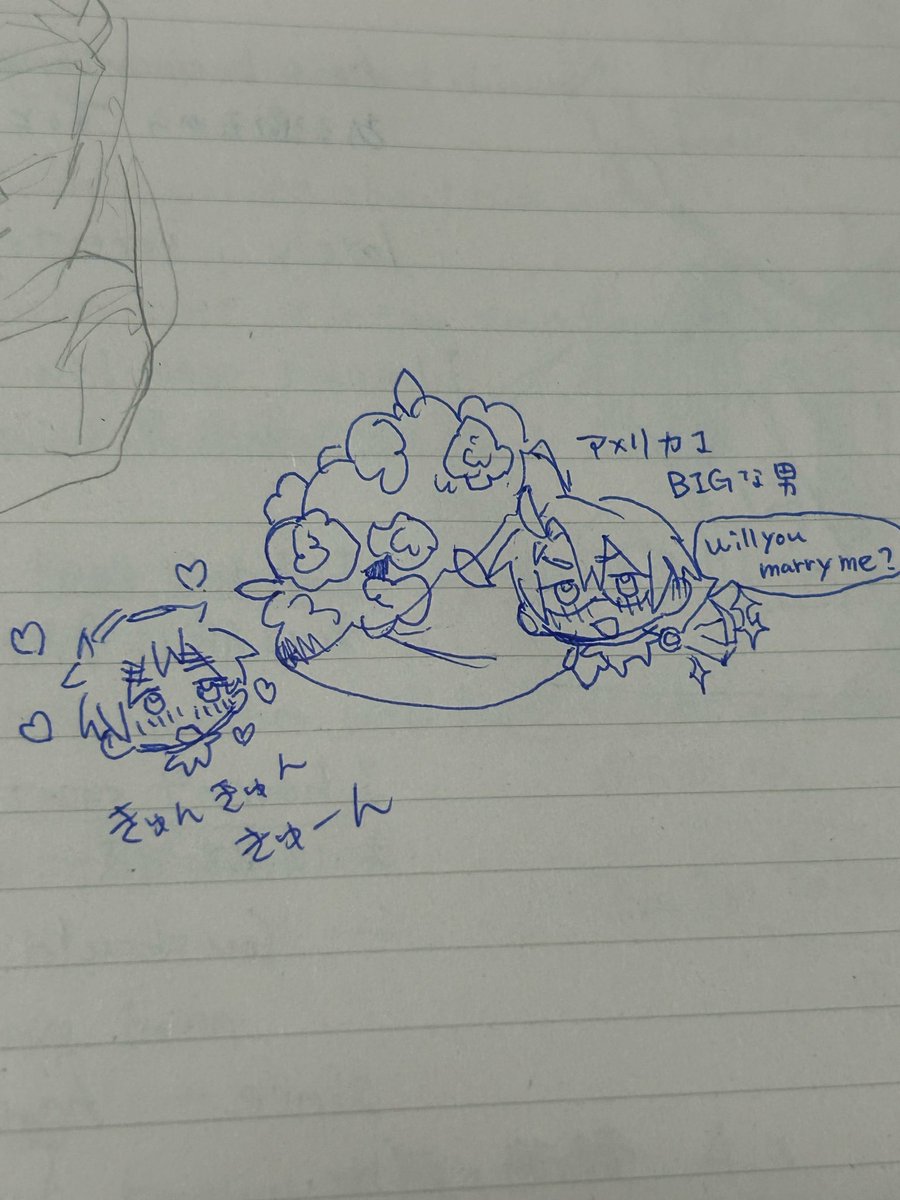 アメリカ1
BIGな男
Will you
marry me?
きゅんきゅん
きゅーん